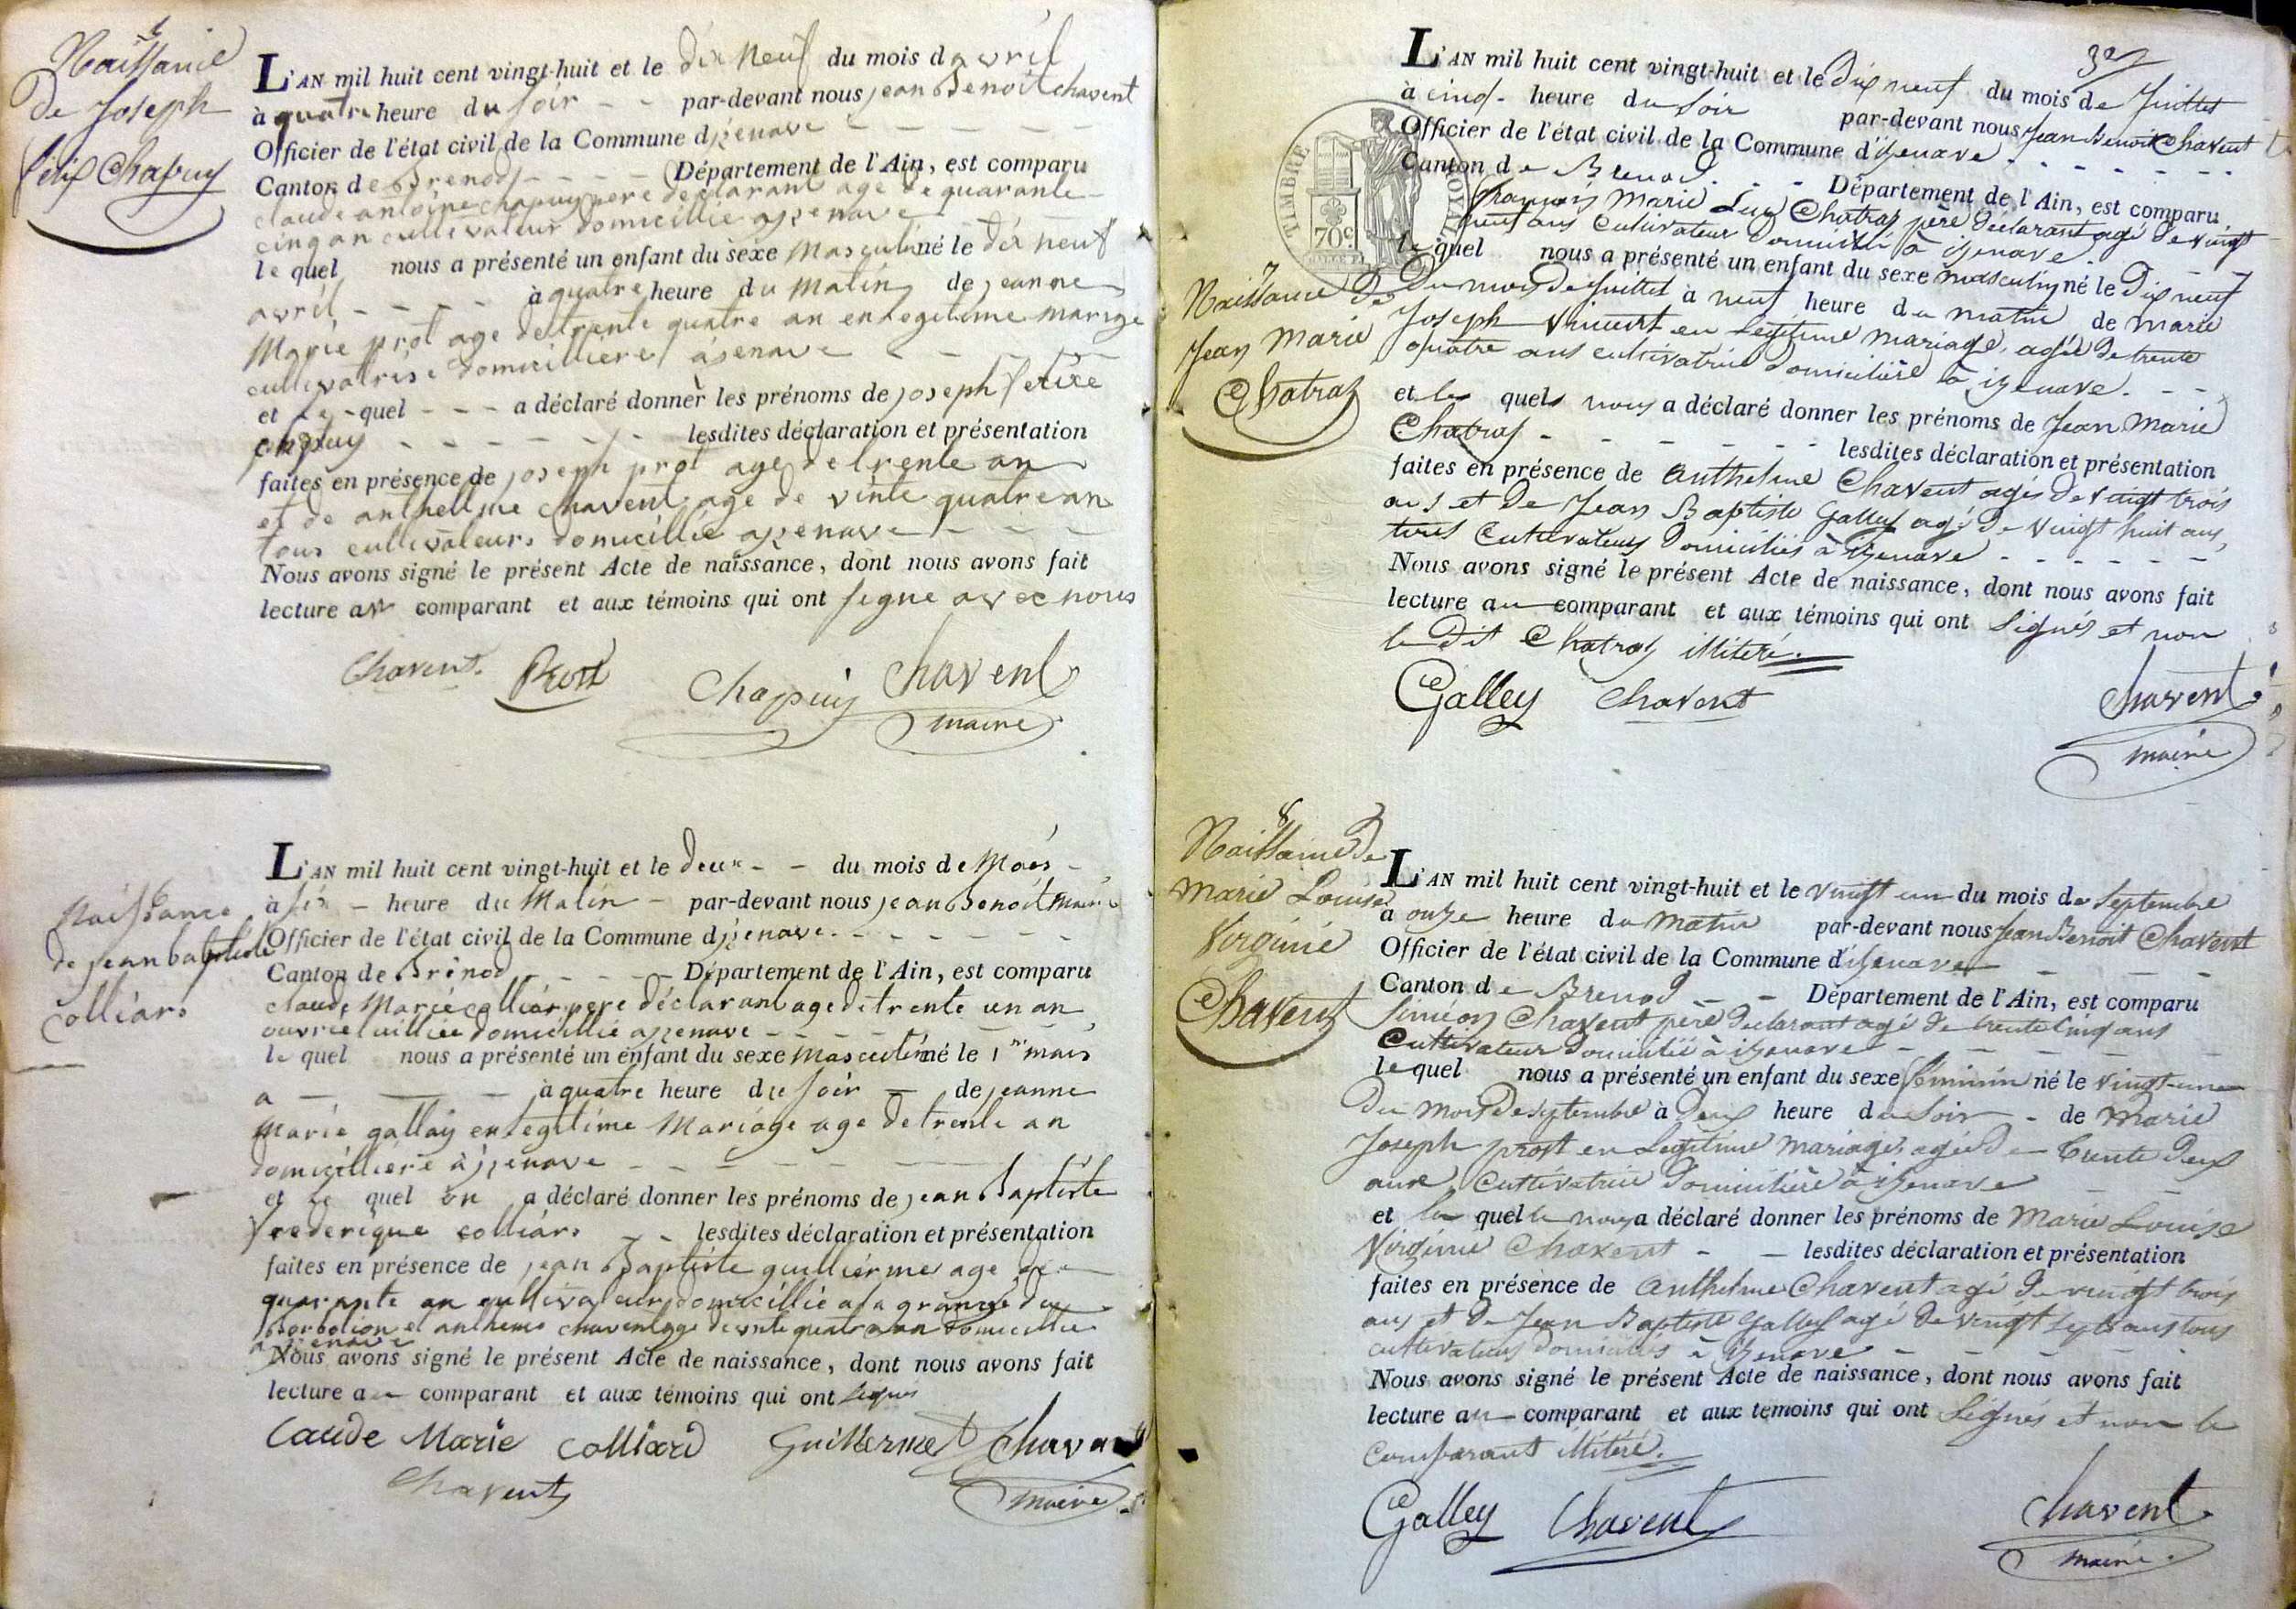 6
Naissance
de Joseph
félix Chapuy
L'AN mil huit cent vingt-huit et le dix neuf du mois d avril
à quatre heure du soir - - par-devant nous jean Benoit chavent
Officier de l'état civil de la Commune d izenave - - - - - -
Canton de Brenod - - - - Département de l'Ain, est comparu
claude antoine chapuy pere declarant age de quarante
cinq an cultivateur domicillié a izenave
le quel nous a présenté un enfant du sexe Masculin né le dix neuf
avril - - - - à quatre heure du Matin de jeanne
Marie prot age de trente quatre an en legitime marige
cultivatrise domicilliere a isenave - - - -
et le - quel - - - a déclaré donner les prénoms de joseph felixe
chapuy - - - - - - - lesdites déclaration et présentation
faites en présence de joseph prot age de trente an
et de anthelme chavent age de vinte quatre an
tous cultivateurs domicillie a izenave - - - -
Nous avons signé le présent Acte de naissance, dont nous avons fait
lecture au comparant et aux témoins qui ont signe avec nous
Chavent. Prost Chapuy Chavent
maire
Naissance
de jean baptiste
colliard
L'AN mil huit cent vingt-huit et le deux - - du mois de Maÿs -
à six - heure du Matin - par-devant nous jean Benoit Maire
Officier de l'état civil de la Commune d izenave. - - - - - -
Canton de Brénod - - - - - Département de l'Ain, est comparu
claude Marie colliard pere déclarant age de trente un an
domicillie a izenave - - - - - -
le quel nous a présenté un enfant du sexe masculin né le 1er mais
a - - - à quatre heure du soir - de jeanne
Marie gallay en legitime Mariage age de trente an
domicilliere à izenave - - - - - -
et le quel on a déclaré donner les prénoms de jean Baptiste
frederique colliard - - lesdites déclaration et présentation
faites en présence de jean Baptiste guillierme age de
quarante an cultivateur domicillié a la grange du
et anthelme chavent age de vinte quatre an domicillie
a izenave
Nous avons signé le présent Acte de naissance, dont nous avons fait
lecture au comparant et aux témoins qui ont signés
Caude Marie colliard Guillermet Chavent
Chavent maire
32
L'AN mil huit cent vingt-huit et le Dix neuf du mois de Juillet
à cinq - heure du Soir par-devant nous Jean Benoit Chavent
Officier de l'état civil de la Commune d'izenave - - - - - -
Canton de Brenod - - - Département de l'Ain, est comparu
François Marie Luc Chatraz père Déclarant agé de vingt
neuf ans Cultivateur Domicilié à izenave.
le quel nous a présenté un enfant du sexe masculin né le Dix neuf
TIMBRE ROYAL
70c
7
Naissance De
Jean Marie
Chatraz
Du mois de Juillet à neuf heure du matin de Marie
Joseph Vincent en Legitime mariage, agée de trente
quatre ans cultivatrice Domicilière à izenave. - -
et les quels nous a déclaré donner les prénoms de Jean Marie
Chatraz - - - - - - - lesdites déclaration et présentation
faites en présence de Anthelme Chavent agés de vaigt trois
ans et De Jean Baptiste Galley agé De Vingt huit ans,
tous Cultivateurs Domiciliés à izenave - - - - - -
Nous avons signé le présent Acte de naissance, dont nous avons fait
lecture au comparant et aux témoins qui ont Signés et non
le Dit Chatraz illitéré.
Galley Chavent Chavent
maire
8
Naissance De
Marie Louise
Virginie
Chavent
L'AN mil huit cent vingt-huit et le vingt un du mois de Septembre
à onze heure du Matin par-devant nous Jean Benoit Chavent
Officier de l'état civil de la Commune d'izenave - - -
Canton de Brenod - - Département de l'Ain, est comparu
Siméon Chavent père Declarant agé de trente Cinq ans
Cultivateur Domicilié à izenave - - - - -
le quel nous a présenté un enfant du sexe féminin né le vingt-une
Du mois de septembre à Deux heure du Soir - de Marie
Joseph prost en Legitime mariage, agée De trente Deux
ans, Cultivatrice Domicilière à izenave
et le quelle nous a déclaré donner les prénoms de Marie Louise
Virginie Chavent - - lesdites déclaration et présentation
faites en présence de Anthelme Chavent agé De vaingt trois
ans et De Jean Baptiste Galley agé De vingt sept ans tous
cultivateurs Domiciliés à izenave - - - - -
Nous avons signé le présent Acte de naissance, dont nous avons fait
lecture au comparant et aux temoins qui ont Signés et non le
Comparant illitéré.
Galley Chavent Chavent
maire.